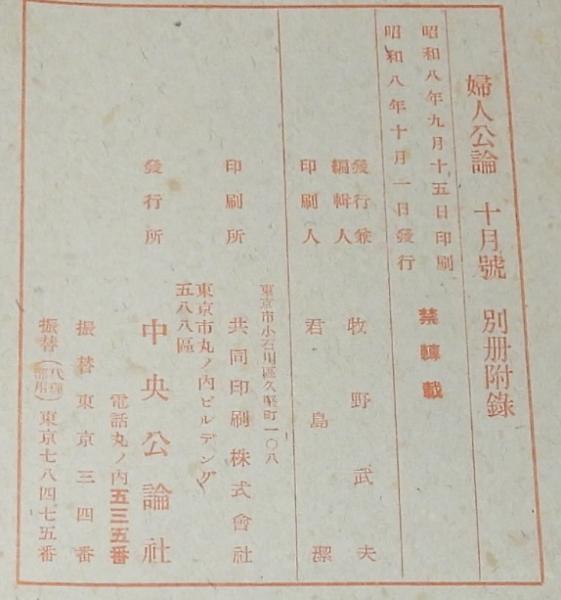 婦人公論 十月號 別册附錄
昭和八年九月十五日印刷
昭和八年十月一日發行
禁轉載
發行兼
編輯人 牧野武夫
印刷人 君島潔
東京市小石川區久堅町一〇八
印刷所 共同印刷株式會社
東京市丸ノ內ビルデング
五八八區
發行所 中央公論社
電話丸ノ內五三五番
振替東京三四番
振替(代理部用)東京七八四七五番